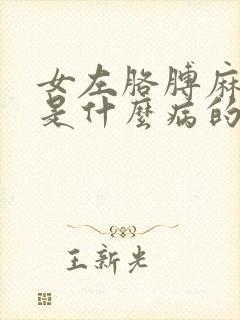 女左胳膊麻
是什麼病的
王新光